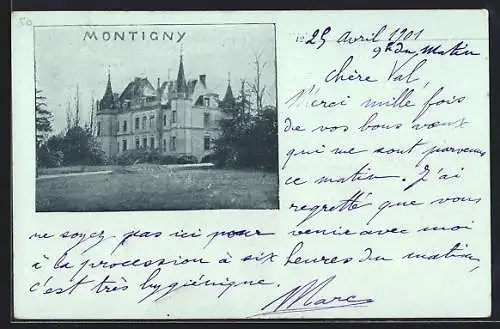 50
MONTIGNY
25 Avril 1901
9h du Matin
Chère Val,
Merci mille fois
de vos bons vœux
qui me sont parvenus
ce matin. J'ai
regretté que vous
ne soyez pas ici pour venir avec moi
à la procession à six heures du matin,
c'est très hygiénique.
Marc